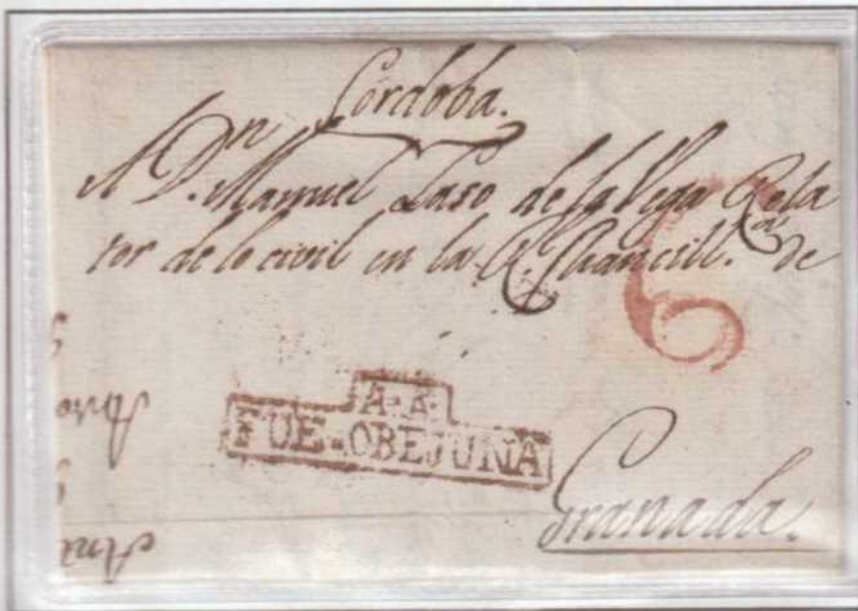 Córdoba.
A Dn. Manuel Laso de la Vega Rela
tor de lo civil en la Rl. Chancill.ª de
6
A·A·
FUE-OBEJUNA
Granada.